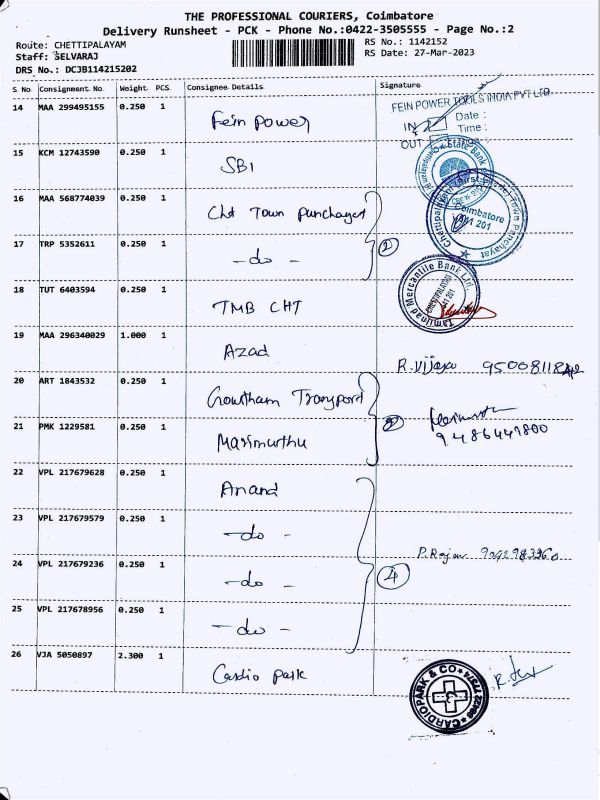 THE PROFESSIONAL COURIERS, Coimbatore
Delivery Runsheet - PCK - Phone No.:0422-3505555 - Page No.:2
Route: CHETTIPALAYAM
RS No.: 1142152
Staff: SELVARAJ
RS Date: 27-Mar-2023
DRS No.: DCJB114215202
S No Consignment No Weight PCS Consignee Details Signature
14 MAA 299495155 0.250 1 Fein Power
FEIN POWER TOOLS INDIA PVT LTD
IN Date :
Time :
OUT
15 KCM 12743590 0.250 1 SBI
State Bank
16 MAA 568774039 0.250 1 Cht Town Punchayat
Town Panchayat
Coimbatore
641 201
17 TRP 5352611 0.250 1 - do - 2
18 TUT 6403594 0.250 1 TMB CHT
Tamilnad Mercantile Bank Ltd
CHETTIPALAYAM
641 201
19 MAA 296340029 1.000 1 Azad R. Vijaya
20 ART 1843532 0.250 1 Gowtham Transport
21 PMK 1229581 0.250 1 Marimuthu 2 9486449800
22 VPL 217679628 0.250 1 Anand
23 VPL 217679579 0.250 1 - do - P. Rajan
24 VPL 217679236 0.250 1 - do - 4
25 VPL 217678956 0.250 1 - do -
26 VJA 5050897 2.300 1 Cardio Park
CARDIOPARK & CO